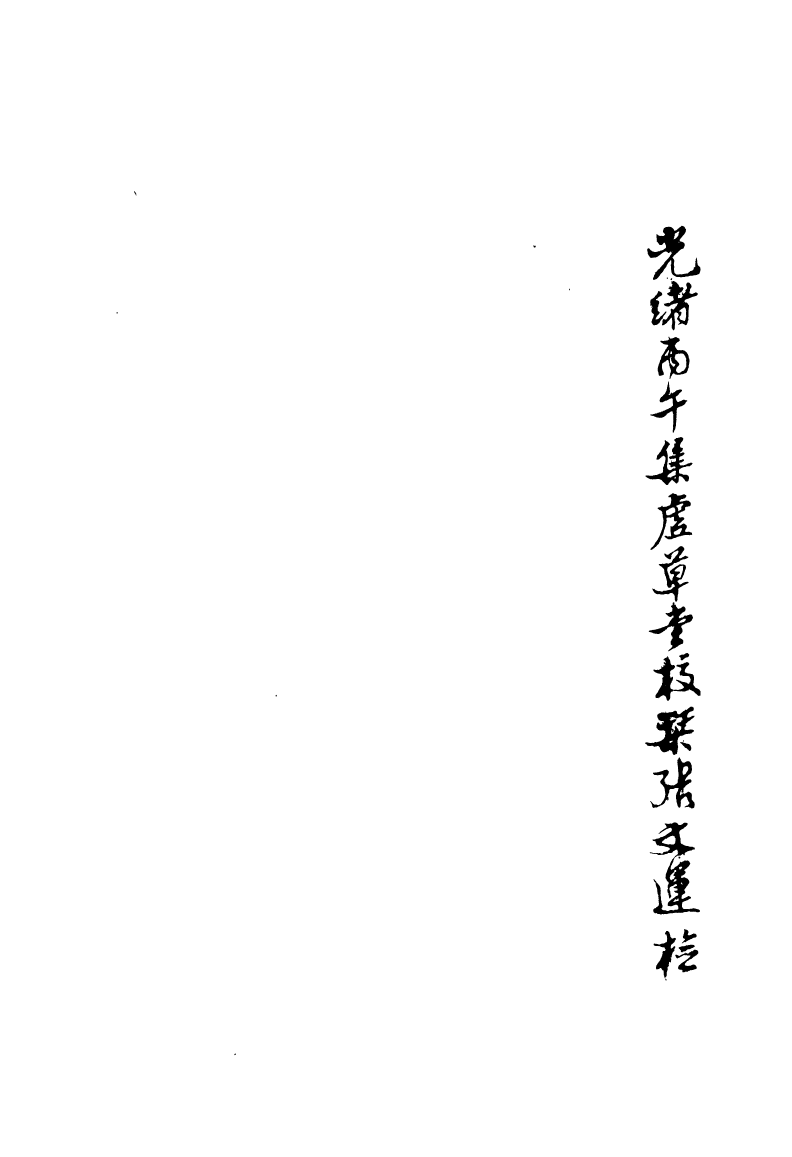 光緒丙午集虛草堂校栞張文運檢